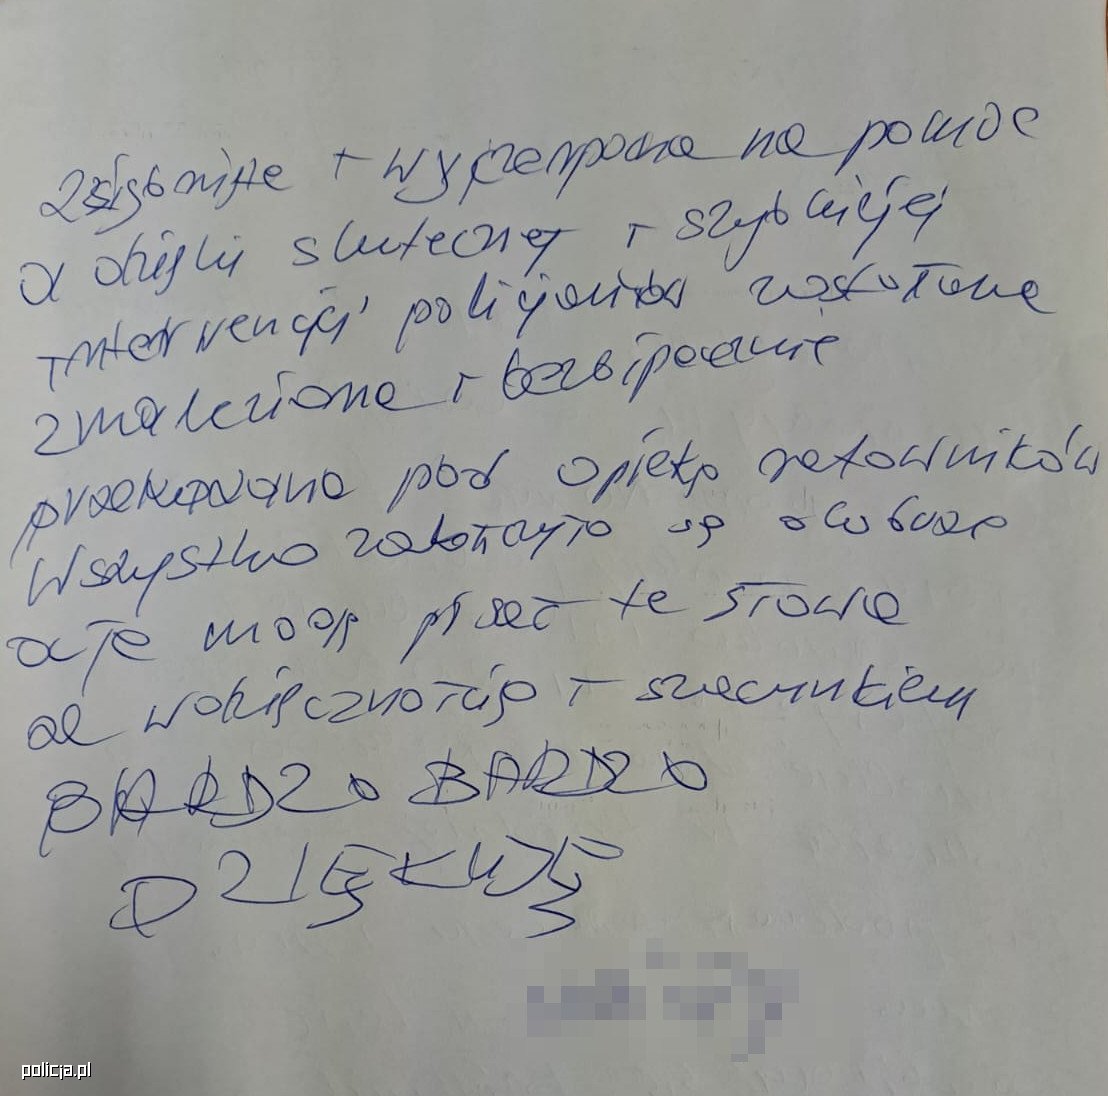 zziębnięta i wyczerpana na pomoc
a dzięki skutecznej i szybkiej
interwencji policjantów zostałam
znaleziona i bezpiecznie
przekazana pod opiekę ratowników
Wszystko zakończyło się dobrze
a ja mogę pisać te słowa
z wdzięcznością i szacunkiem
BARDZO BARDZO
DZIĘKUJĘ
policja.pl